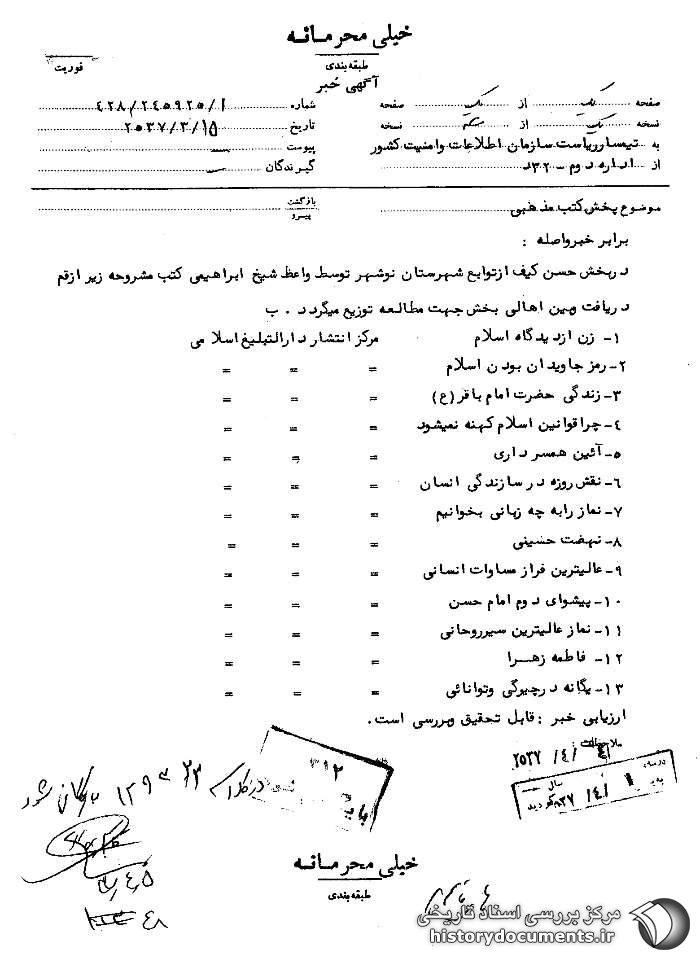 خیلی محرمانه
طبقه‌بندی
آگهی خبر
فوریت
صفحه یک از یک صفحه
شماره ۴۲۸/۲۴۵۹۲۵/۱
نسخه یک از سه نسخه
تاریخ ۲۵۳۷/۳/۱۵
به تیمسار ریاست سازمان اطلاعات وامنیت کشور
پیوست
از اداره دوم - ۳۲۰د
گیرندگان
موضوع پخش کتب مذهبی
بازگشت
پیرو
برابر خبرواصله :
دربخش حسن کیف ازتوابع شهرستان نوشهر توسط واعظ شیخ ابراهیمی کتب مشروحه زیر ازقم
دریافت وبین اهالی بخش جهت مطالعه توزیع میگردد . ب
۱- زن ازدیدگاه اسلام مرکز انتشار دارالتبلیغ اسلامی
۲- رمز جاویدان بودن اسلام = = =
۳- زندگی حضرت امام باقر(ع) = = =
۴- چراقوانین اسلام کهنه نمیشود = = =
۵- آئین همسرداری = = =
۶- نقش روزه درسازندگی انسان = = =
۷- نماز رابه چه زبانی بخوانیم = = =
۸- نهضت حسینی = = =
۹- عالیترین فراز مساوات انسانی = = =
۱۰- پیشوای دوم امام حسن = = =
۱۱- نماز عالیترین سیرروحانی = = =
۱۲- فاطمه زهرا = = =
۱۳- یگانه درچیرگی وتوانائی = = =
ارزیابی خبر : قابل تحقیق وبررسی است .
ملاحظات
۲۵۳۷/۴/۴
۳۱۲
در کلاسه ۱۲۹۳۲۳ بایگانی شود
سال
۴/۵
خیلی محرمانه
طبقه‌بندی
مرکز بررسی اسناد تاریخی
historydocuments.ir